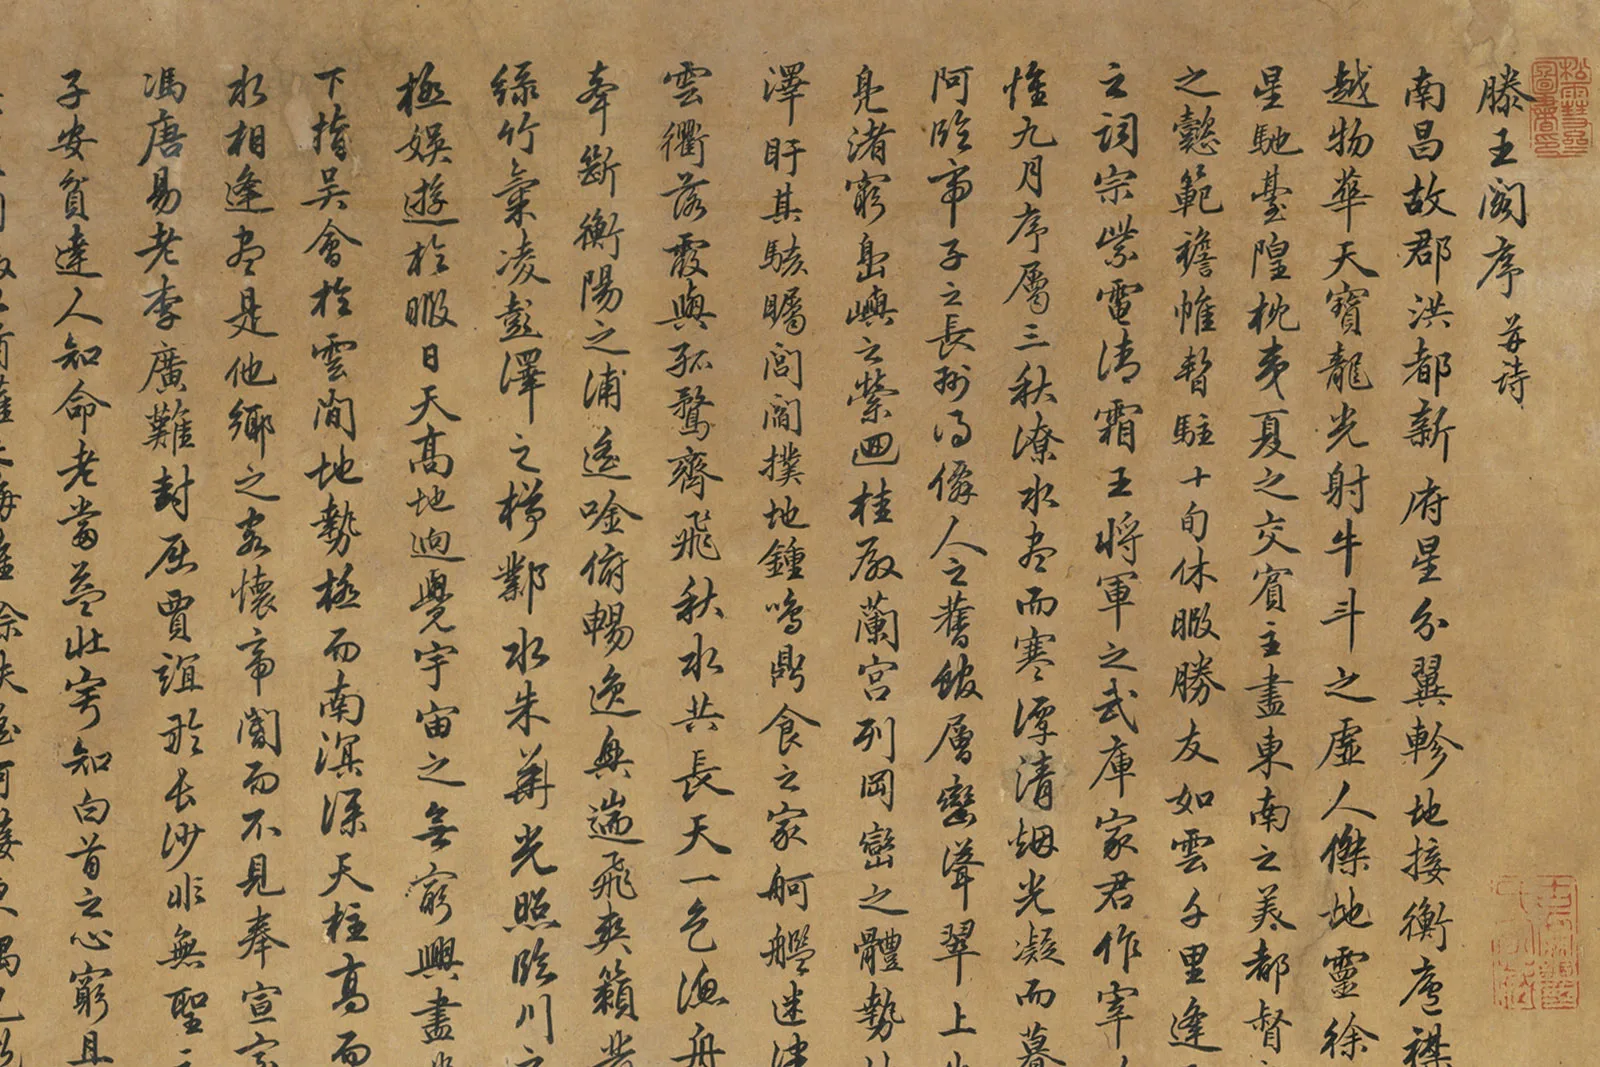 滕王閣序 并詩
南昌故郡洪都新府星分翼軫地接衡廬襟
越物華天寶龍光射牛斗之虛人傑地靈徐
星馳臺隍枕夷夏之交賓主盡東南之美都督
之懿範襜帷暫駐十旬休暇勝友如雲千里逢
之詞宗紫電清霜王將軍之武庫家君作宰
惟九月序屬三秋潦水盡而寒潭清烟光凝而暮
阿臨帝子之長洲得僊人之舊館層巒聳翠上
鳧渚窮島嶼之縈迴桂殿蘭宮列岡巒之體勢
澤盱其駭矚閭閻撲地鍾鳴鼎食之家舸艦迷津
雲衢落霞與孤鶩齊飛秋水共長天一色漁舟
牽斷衡陽之浦遥吟俯暢逸興遄飛爽籟
綠竹氣凌彭澤之樽鄴水朱華光照臨川之
極娛遊於暇日天高地迥覺宇宙之無窮興盡
下指吳會於雲間地勢極而南溟深天柱高而
水相逢盡是他鄉之客懷帝閽而不見奉宣室
馮唐易老李廣難封屈賈誼於長沙非無聖
子安貧達人知命老當益壯寧知白首之心窮且